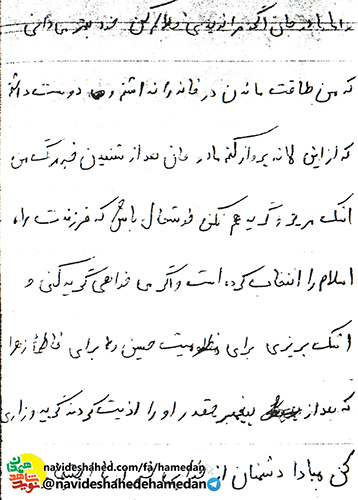 و اما مادر جان اگر مرا ندیدی حلالم کن خودت بهتر می‌دانی
که من طاقت ماندن در خانه را نداشتم و دوست داشتم
که از این لانه پرواز کنم مادر جان بعد از شنیدن خبر مرگ من
اشک مریز و گریه هم نکن خوشحال باش که فرزندت راه
اسلام را انتخاب کرده است و اگر می خواهی گریه کنی و
اشک بریزی برای مظلومیت حسین و یا برای فاطمه زهرا
که بعد از پیغمبر چقدر او را اذیت کردند گریه و زاری
کن مبادا دشمنان از
navideshahed.com/fa/hamedan
@navideshahedehamedan